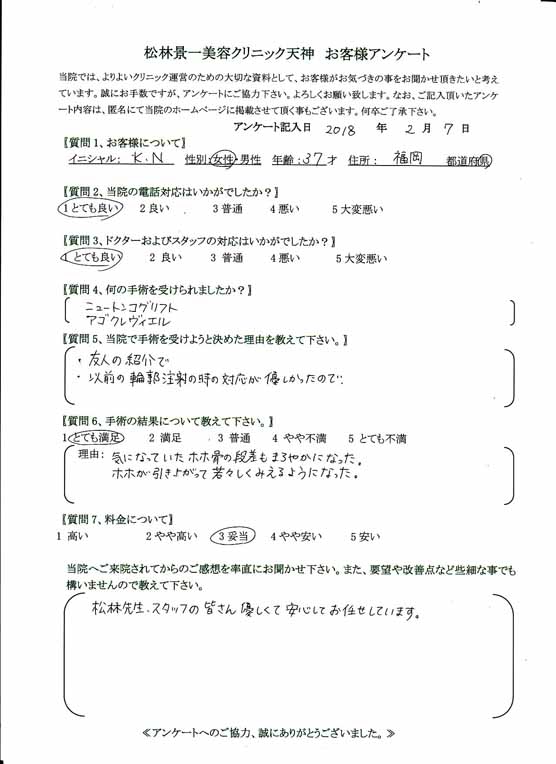 松林景一美容クリニック天神 お客様アンケート
当院では、よりよいクリニック運営のための大切な資料として、お客様がお気づきの事をお聞かせ頂きたいと考え
ています。誠にお手数ですが、アンケートにご協力下さい。よろしくお願い致します。なお、ご記入頂いたアンケ
ート内容は、匿名にて当院のホームページに掲載させて頂く事もございます。何卒ご了承下さい。
アンケート記入日 2018 年 2 月 7 日
【質問1、お客様について】
イニシャル: K.N 性別:女性・男性 年齢:37才 住所: 福岡 都道府県
【質問2、当院の電話対応はいかがでしたか?】
1とても良い 2良い 3普通 4悪い 5大変悪い
【質問3、ドクターおよびスタッフの対応はいかがでしたか?】
1とても良い 2 良い 3 普通 4 悪い 5大変悪い
【質問4、何の手術を受けられましたか?】
ニュートンコグリフト
アゴクレヴィエル
【質問5、当院で手術を受けようと決めた理由を教えて下さい。】
・友人の紹介で
・以前の輪郭注射の時の対応が優しかったので。
【質問6、手術の結果について教えて下さい。】
1とても満足 2 満足 3 普通 4 やや不満 5 とても不満
理由: 気になっていたホホ骨の段差もまろやかになった。
ホホが引き上がって若々しくみえるようになった。
【質問7、料金について】
1 高い 2やや高い 3妥当 4やや安い 5安い
当院へご来院されてからのご感想を率直にお聞かせ下さい。また、要望や改善点など些細な事でも
構いませんので教えて下さい。
松林先生、スタッフの皆さん優しくて安心してお任せしています。
≪アンケートへのご協力、誠にありがとうございました。≫